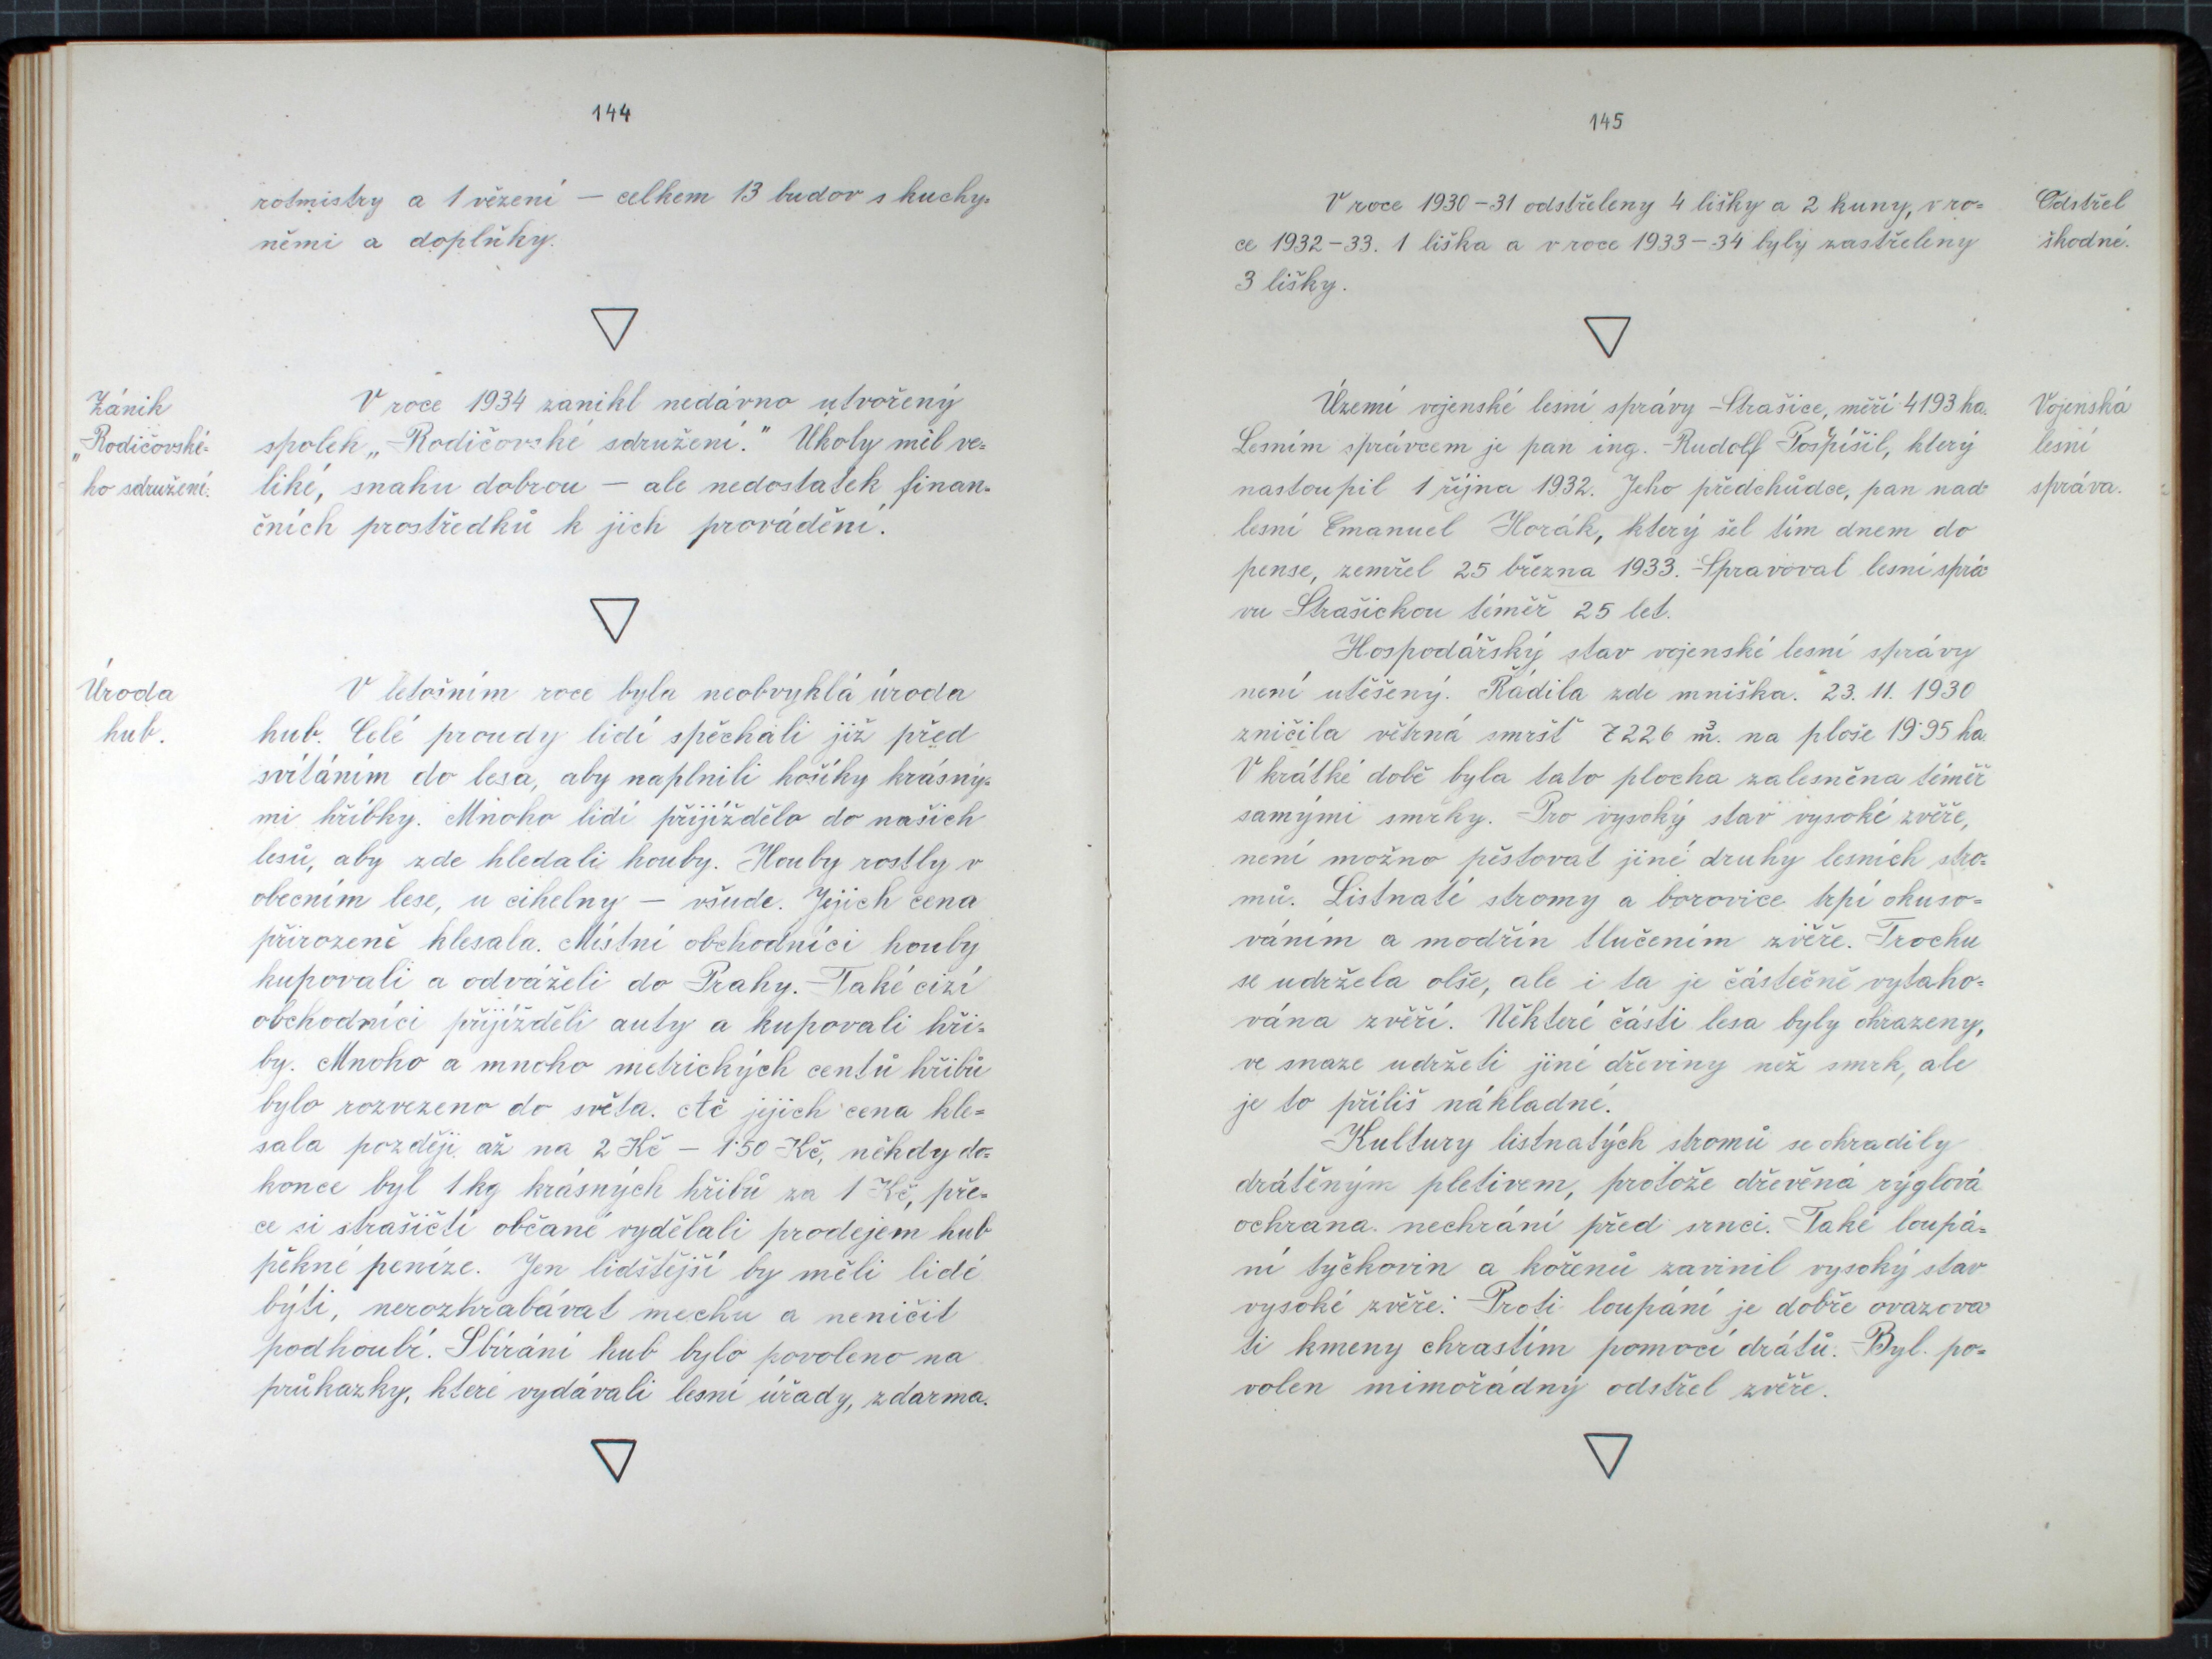 144
rotmistry a 1 vězení — celkem 13 budov s kuchy=
němi a doplňky.
Zánik
„Rodičovské=
ho sdružení.
V roce 1934 zanikl nedávno utvořený
spolek „Rodičovské sdružení." Úkoly měl ve=
liké, snahu dobrou — ale nedostatek finan=
čních prostředků k jich provádění.
Úroda
hub.
V letošním roce byla neobvyklá úroda
hub. Celé proudy lidí spěchali již před
svítáním do lesa, aby naplnili košíky krásný=
mi hříbky. Mnoho lidí přijíždělo do našich
lesů, aby zde hledali houby. Houby rostly v
obecním lese, u cihelny — všude. Jejich cena
přirozeně klesala. Místní obchodníci houby
kupovali a odváželi do Prahy. Také cizí
obchodníci přijížděli auty a kupovali hři=
by. Mnoho a mnoho metrických centů hřibů
bylo rozvezeno do světa. Ač jejich cena kle=
sala později až na 2 Kč — 1·50 Kč, někdy do=
konce byl 1 kg krásných hřibů za 1 Kč, pře=
ce si strašičtí občané vydělali prodejem hub
pěkné peníze. Jen lidštější by měli lidé
býti, nerozhrabávat mechu a neničit
podhoubí. Sbírání hub bylo povoleno na
průkazky, které vydávali lesní úřady, zdarma.
145
V roce 1930–31 odstřeleny 4 lišky a 2 kuny, v ro=
ce 1932–33. 1 liška a v roce 1933–34 byly zastřeleny
3 lišky.
Odstřel
škodné.
Území vojenské lesní správy Strašice, měří 4193 ha.
Lesním správcem je pan ing. Rudolf Pospíšil, který
nastoupil 1 října 1932. Jeho předchůdce, pan nad=
lesní Emanuel Horák, který šel tím dnem do
pense, zemřel 25 března 1933. Spravoval lesní sprá=
vu Strašickou téměř 25 let.
Vojenská
lesní
správa.
Hospodářský stav vojenské lesní správy
není utěšený. Řádila zde mniška. 23. 11. 1930
zničila větrná smršť 7226 m³. na ploše 19·95 ha.
V krátké době byla tato plocha zalesněna téměř
samými smrky. Pro vysoký stav vysoké zvěře,
není možno pěstovat jiné druhy lesních stro=
mů. Listnaté stromy a borovice trpí okuso=
váním a modřín tlučením zvěře. Trochu
se udržela olše, ale i ta je částečně vytaho=
vána zvěří. Některé části lesa byly ohrazeny,
ve snaze udržeti jiné dřeviny než smrk, ale
je to příliš nákladné.
Kultury listnatých stromů se ohradily
drátěným pletivem, protože dřevěná rýglová
ochrana nechrání před srnci. Také loupá=
ní tyčkovin a kořenů zavinil vysoký stav
vysoké zvěře. Proti loupání je dobře ovazova=
ti kmeny chrastím pomocí drátů. Byl po=
volen mimořádný odstřel zvěře.